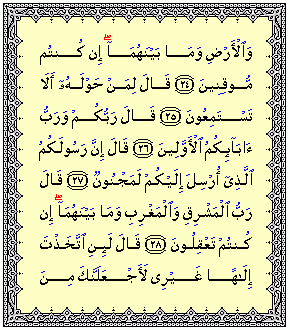 وَٱلْأَرْضِ وَمَا بَيْنَهُمَآ ۖ إِن كُنتُم
مُّوقِنِينَ ٢٤ قَالَ لِمَنْ حَوْلَهُۥٓ أَلَا
تَسْتَمِعُونَ ٢٥ قَالَ رَبُّكُمْ وَرَبُّ
ءَابَآئِكُمُ ٱلْأَوَّلِينَ ٢٦ قَالَ إِنَّ رَسُولَكُمُ
ٱلَّذِىٓ أُرْسِلَ إِلَيْكُمْ لَمَجْنُونٌ ٢٧ قَالَ
رَبُّ ٱلْمَشْرِقِ وَٱلْمَغْرِبِ وَمَا بَيْنَهُمَآ ۖ إِن
كُنتُمْ تَعْقِلُونَ ٢٨ قَالَ لَئِنِ ٱتَّخَذْتَ
إِلَٰهًا غَيْرِى لَأَجْعَلَنَّكَ مِنَ